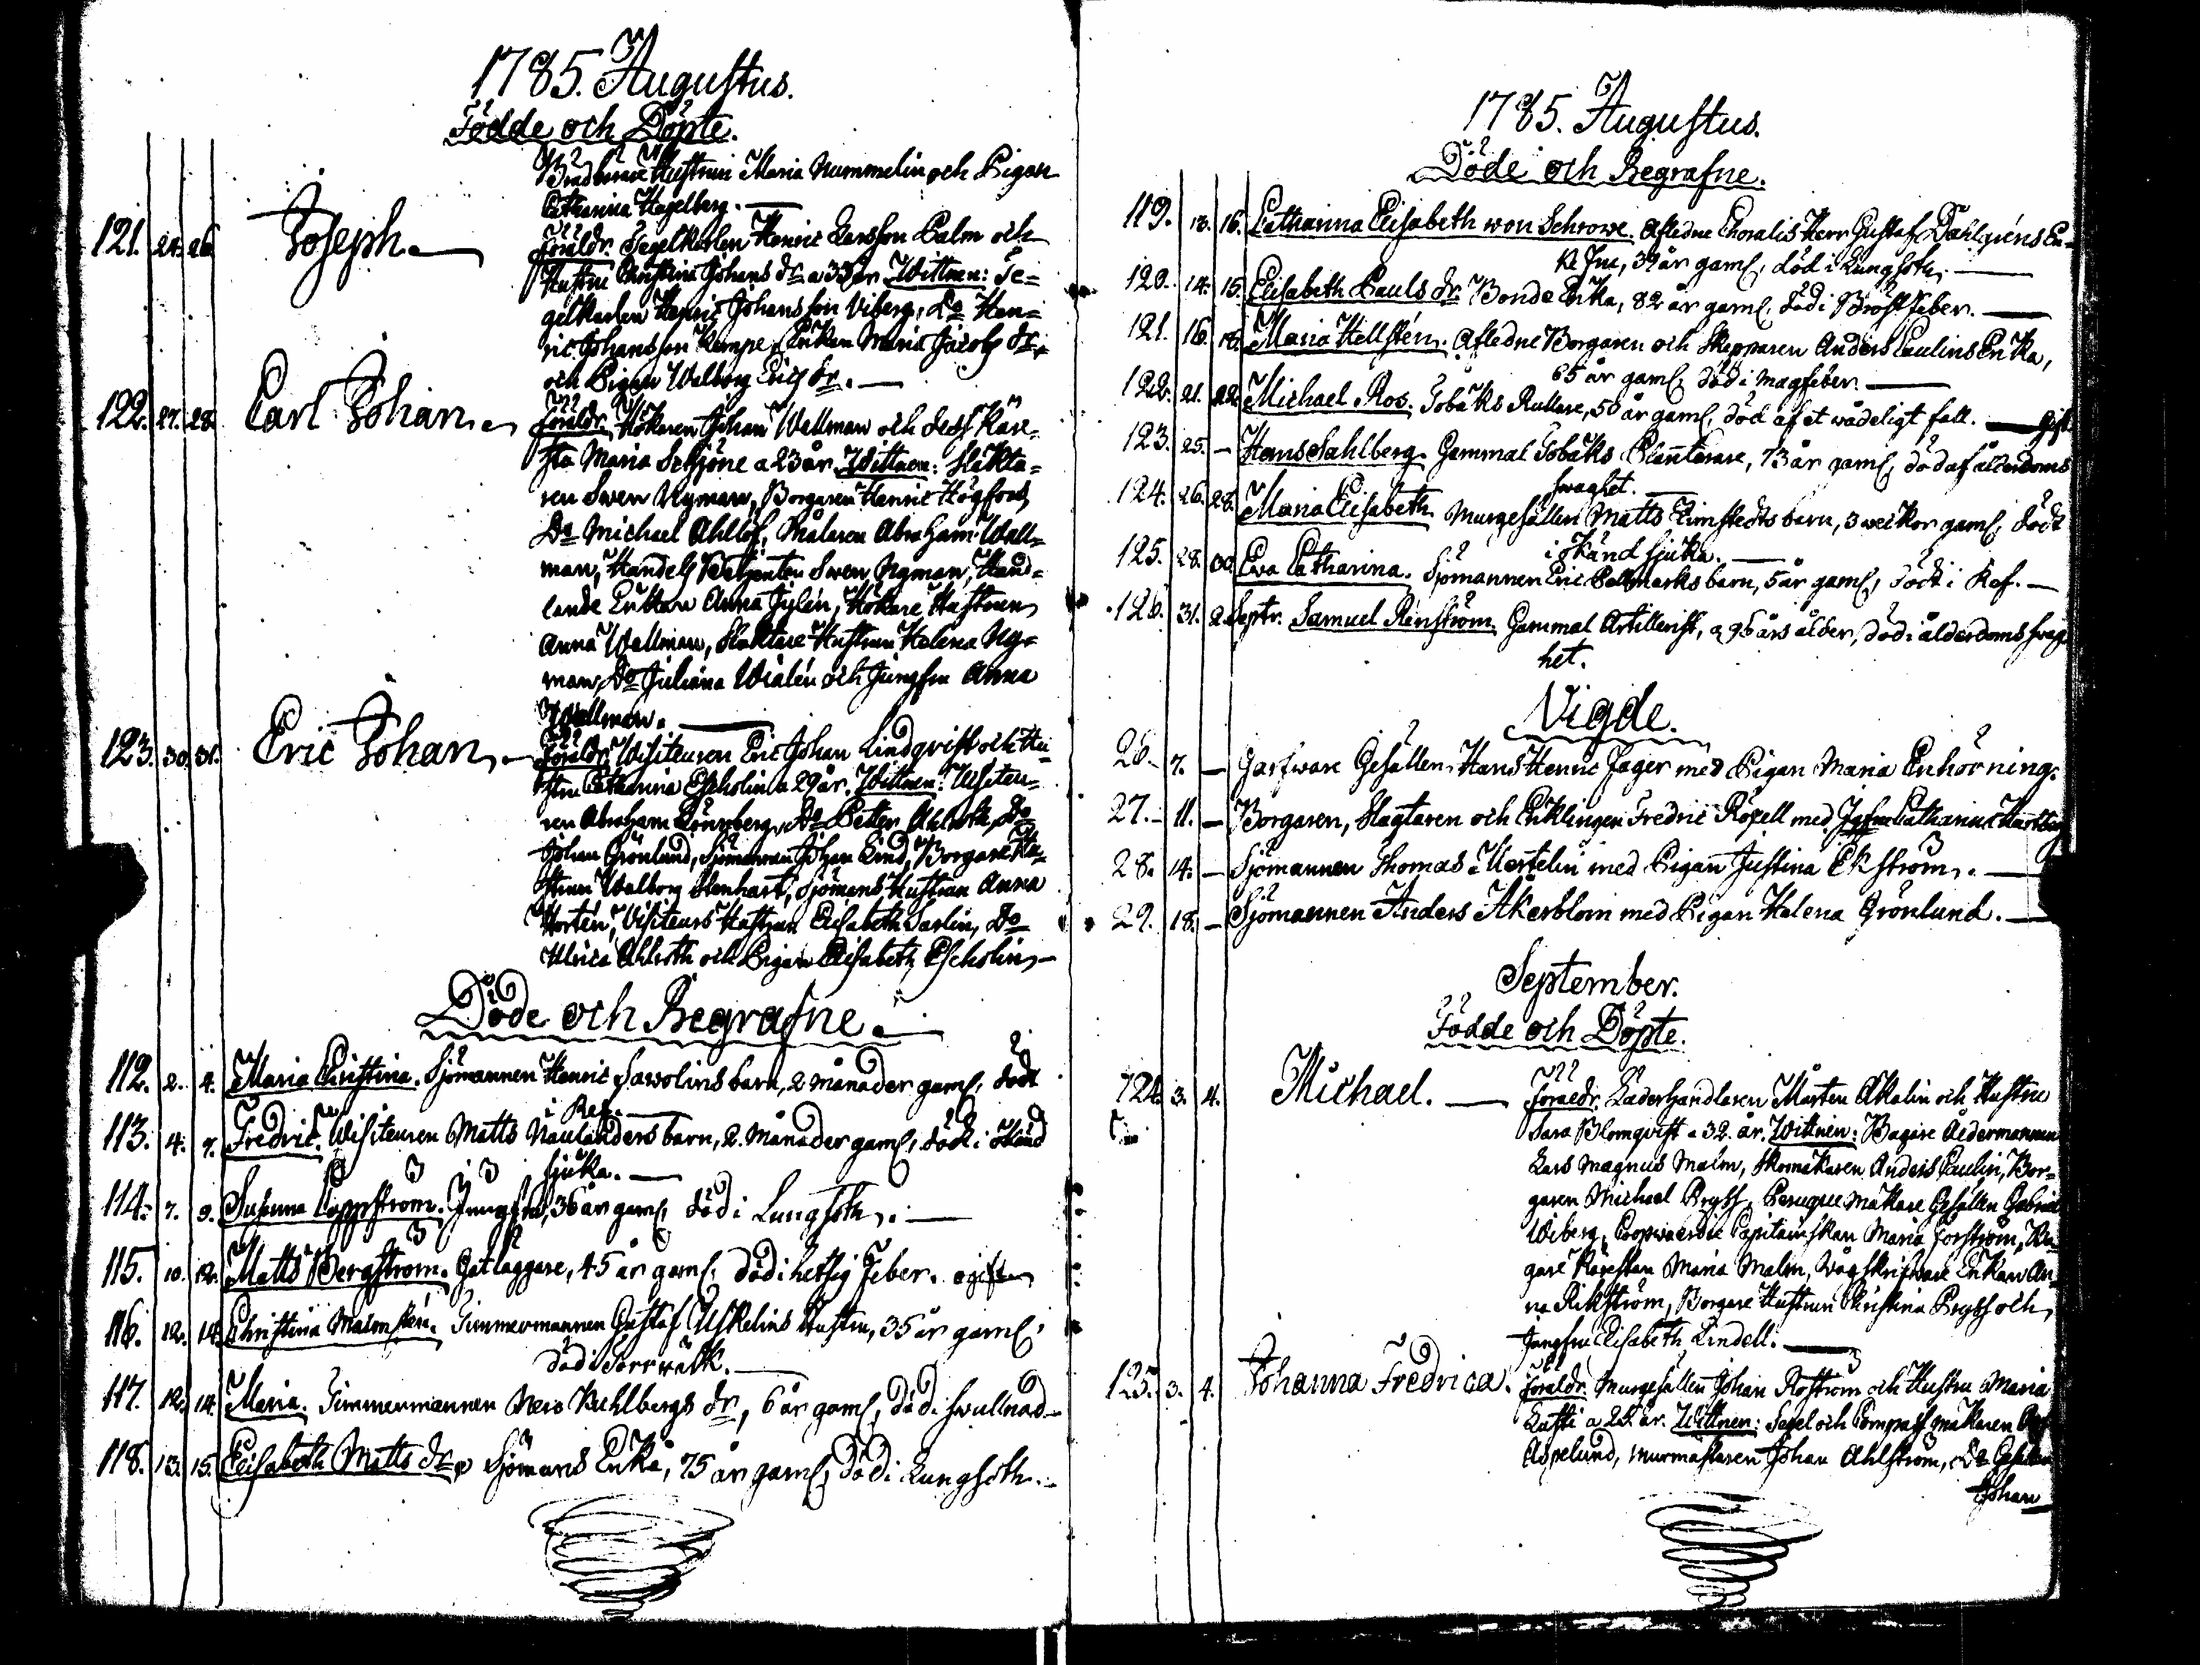 1785. Augustus.
Födde och Döpte.
Hustrun Maria Nummelin och Pigan
Catharina Hagelberg.
121. 24. 26. Joseph. Föräldr. Segelkarlen Henric Larsson Palm och
Hustru Christina Johans dr a 33 år Wittnen: Se-
gelkarlen Henric Johansson Viberg, Do Hen-
ric Johansson Kempe, Enkan Maria Jacobs dr
och Pigan Walborg Erics dr.
122. 27. 28. Carl Johan. Föräldr. Hökaren Johan Wallman och dess Käre-
sta Maria Schjöne a 23 år. Wittnen: Slakta-
ren Swen Nyman, Borgaren Henric Högfors,
Do Michael Ahllöf, Målaren Abraham Wall-
man, Handels Betjenten Swen Nyman, Hand-
lande Enkan Anna Jylén, Hökare Hustrun
Anna Wallman, Slaktare Hustrun Helena Ny-
man, Do Juliana Widlén och Jungfru Anna
Wallman.
123. 30. 31. Eric Johan. Föräldr. Visiteuren Eric Johan Lindqvist och Hu-
stru Catharina Escholin a 29 år. Wittnen: Visiteu-
ren Abraham Lönnberg, Do Petter Ahlroth, Do
Johan Grönlund, Sjömannen Johan Lind, Borgare Hu-
strun Walborg Stenhart, Sjömans Hustrun Anna
Hortén, Visiteurs Hustrun Elisabeth Sarlin, Do
Ulrica Ahlroth och Pigan Elisabeth Escholin.
Döde och Begrafne.
112. 2. 4. Maria Christina. Sjömannen Henric Sawolins barn, 2 månader gaml, dödt
i
113. 4. 7. Fredric. Visiteuren Matts Naulanders barn, 2. Månader gaml, dödt i okänd
sjuka.
114. 7. 9. Susanna Coppström. Jungfru, 36 år gaml, död i Lungsoth.
115. 10. 12. Matts Bergström. Gatläggare, 45 år gaml, död i hetsig Feber. ogift
116. 12. 14. Christina Malmstén. Timmermannen Gustaf Uskelins Hustru, 35 år gaml,
död i Torrwärk.
117. 12. 14. Maria. Timmermannen Kuhlbergs dr, 6 år gaml, död i swullnad
118. 13. 15. Elisabeth Matts dr, Sjömans Enka, 75 år gaml, död i Lungsoth.
1785. Augustus.
Döde och Begrafne.
119. 13. 16. Catharina Elisabeth von Schrowe. Afledne Choralis Herr Gustaf Dahlgréns En-
ke Fru, 39 år gaml, död i Lungsoth.
120. 14. 15. Elisabeth Pauls dr. Bonde Enka, 82 år gaml, död i Bröstfeber.
121. 16. 18. Maria Hellstén. Afledne Borgaren och Skepparen Anders Paulins Enka,
65 år gaml, död i magfeber.
122. 21. 22. Michael Ros. Tobaks Rullare, 50 år gaml, död af et wådeligt fall. Gift
123. 25. – Hans Sahlberg. Gammal Tobaks Planterare, 73 år gaml, död af ålderdoms
swaghet.
124. 26. 28. Maria Elisabeth. Murgesällen Matts Limstedts barn, 3 weckor gaml, dödt
i okänd sjuka.
125. 28. 30. Eva Catharina. Sjömannen Eric Pallmarks barn, 5 år gaml, dödt i Kof.
126. 31. 2 Septr. Samuel Renström. Gammal Artillerist, a 96 års ålder, död i ålderdoms swag-
het.
Vigde.
26. 7. – Garfware Gesällen Hans Henric Jäger med Pigan Maria Enhörning.
27. 11. – Borgaren, Slagtaren och Enklingen Fredric Roxell med Jgfru Catharina
28. 14. – Sjömannen Thomas Mertelin med Pigan Justina Ekström.
29. 18. – Sjömannen Anders Åkerblom med Pigan Helena Grönlund.
September.
Födde och Döpte.
124. 3. 4. Michael. Föraldr. Läderhandlaren Mårten Akalin och Hustru
Sara Blomqvist a 32. år. Wittnen: Bagare Åldermannen
Lars Magnus Malm, Skomakaren Anders Paulin, Bor-
garen Michael Bryss, Peruque Makare Gesällen Gabriel
Wiberg, Coopvaerdie Capitainskan Maria Forström, Ba-
gare Kärestan Maria Malm, Vågskrifware Enkan An-
na Rikström, Borgare Hustrun Christina Bryss och
Jungfru Elisabeth Lindell.
125. 3. 4. Johanna Fredrica. Föräldr. Murgesällen Johan Roström och Hustru Maria
Latti a 25 år. Wittnen: Segel och Compass makaren
Aspelund, Murmästaren Johan Ahlström, Do Gesällen
Johan